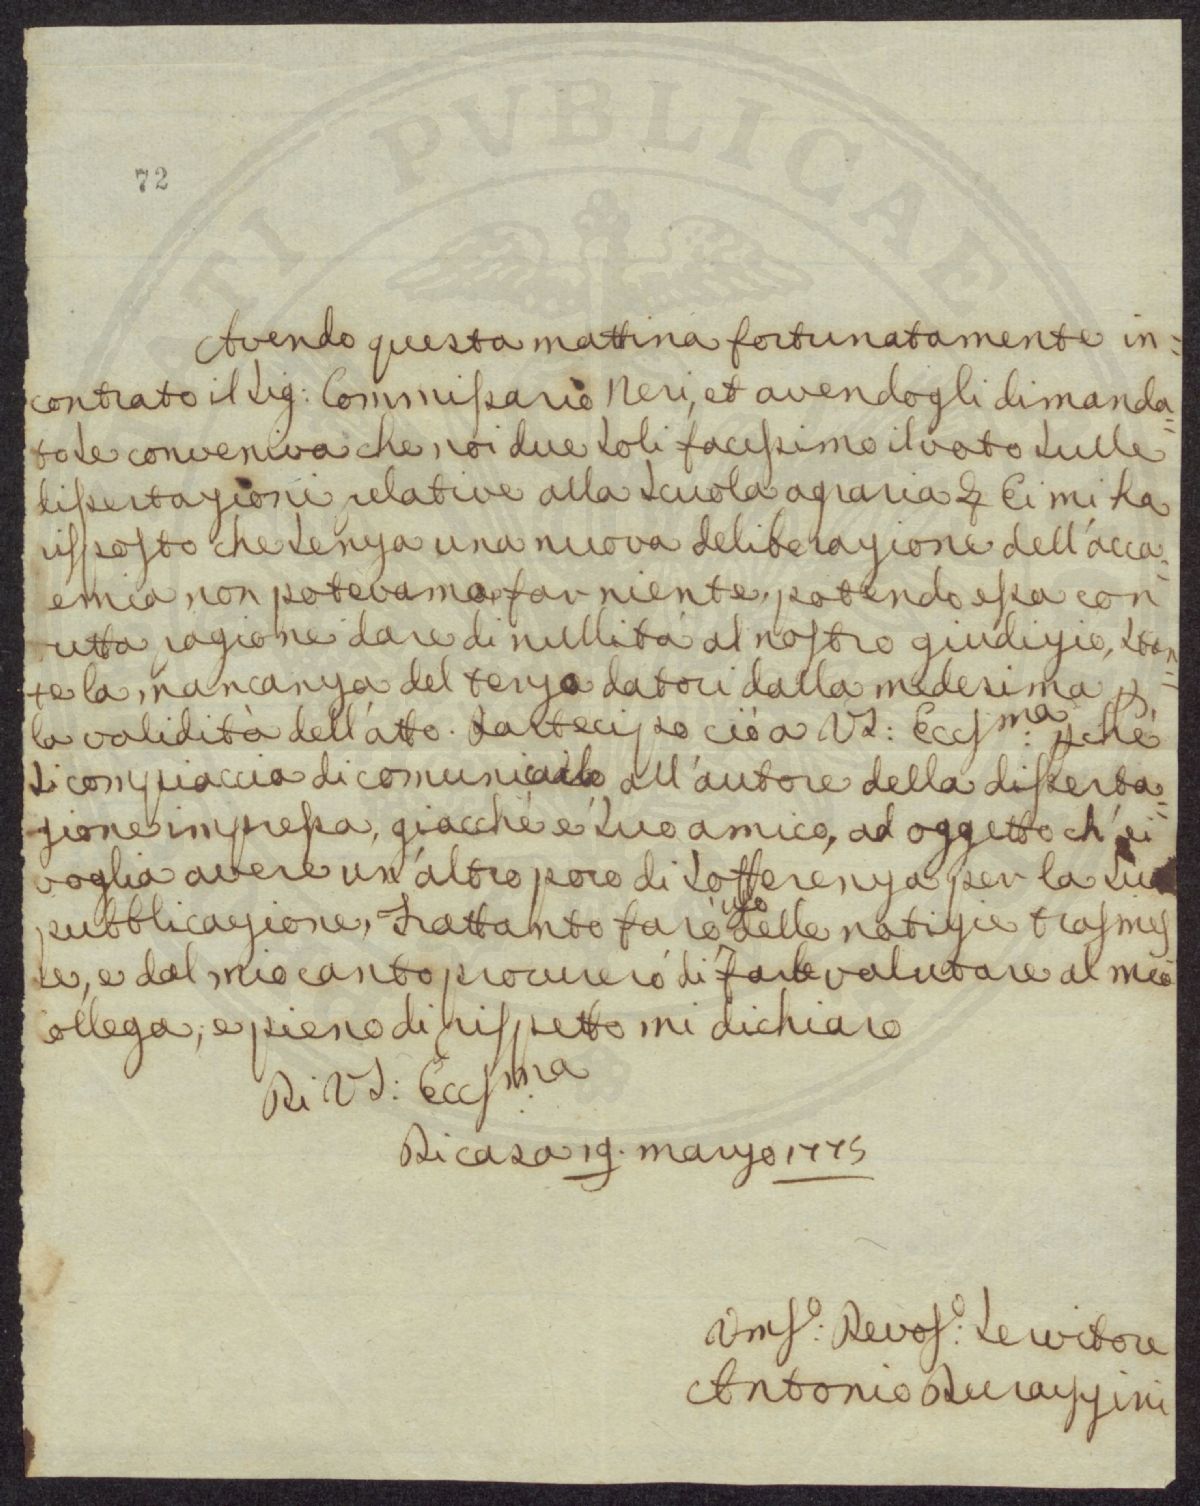 72
Avendo questa mattina fortunatamente in=
contrato il Sig: Commissario Neri, et avendogli dimanda=
to se conveniva che noi due soli facessimo il voto sulle
dissertazioni relative alla scuola agraria & Ei mi ha
risposto che senza una nuova deliberazione dell'acca=
emia non potevamo far niente, potendo essa con
utta ragione dare di nullità al nostro giudizio, stan=
te la mancanza del terzo datoci dalla medesima p.
la validità dell'atto. Partecipo ciò a VS: Eccs.ma pchè
si compiaccia di comunicarlo all'autore della disserta=
zione impressa, giacchè è suo amico, ad oggetto ch'ei
voglia avere un'altro poco di sofferenza per la sua
pubblicazione, Frattanto farò uso delle notizie trasmes
se, e dal mio canto procurerò di farle valutare al mio
ollega, e pieno di rispetto mi dichiaro
Di VS: Eccs.ma
Di casa 19. marzo 1775
Ums.o: Devos.o: Servitore
Antonio Durazzini
PVBLICAE